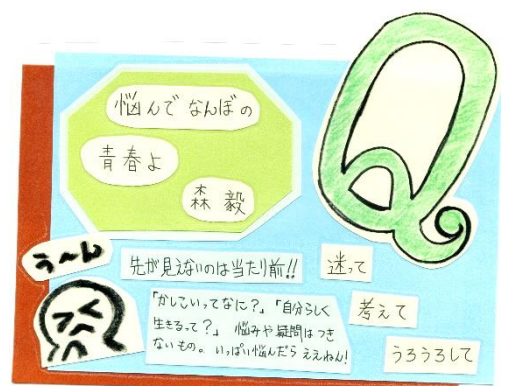 悩んで なんぼの
青春よ
森 毅
Q
う〜ん
先が見えないのは当たり前!!
迷って
「かしこいってなに?」「自分らしく
生きるって?」 悩みや疑問はつき
ないもの。いっぱい悩んだら ええねん!
考えて
うろうろして